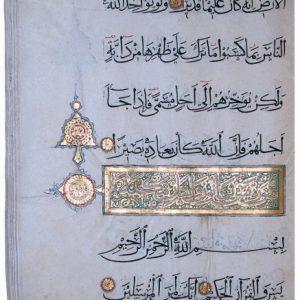 الارض انه كان عليما قديرا ولو يواخذ الله
الناس بما كسبوا ما ترك على ظهرها من دابة
ولكن يوخرهم الى اجل مسمى فاذا جا
اجلهم فان الله كان بعباده بصيرا
بسم الله الرحمن الرحيم
يس والقران الحكيم انك لمن المرسلين